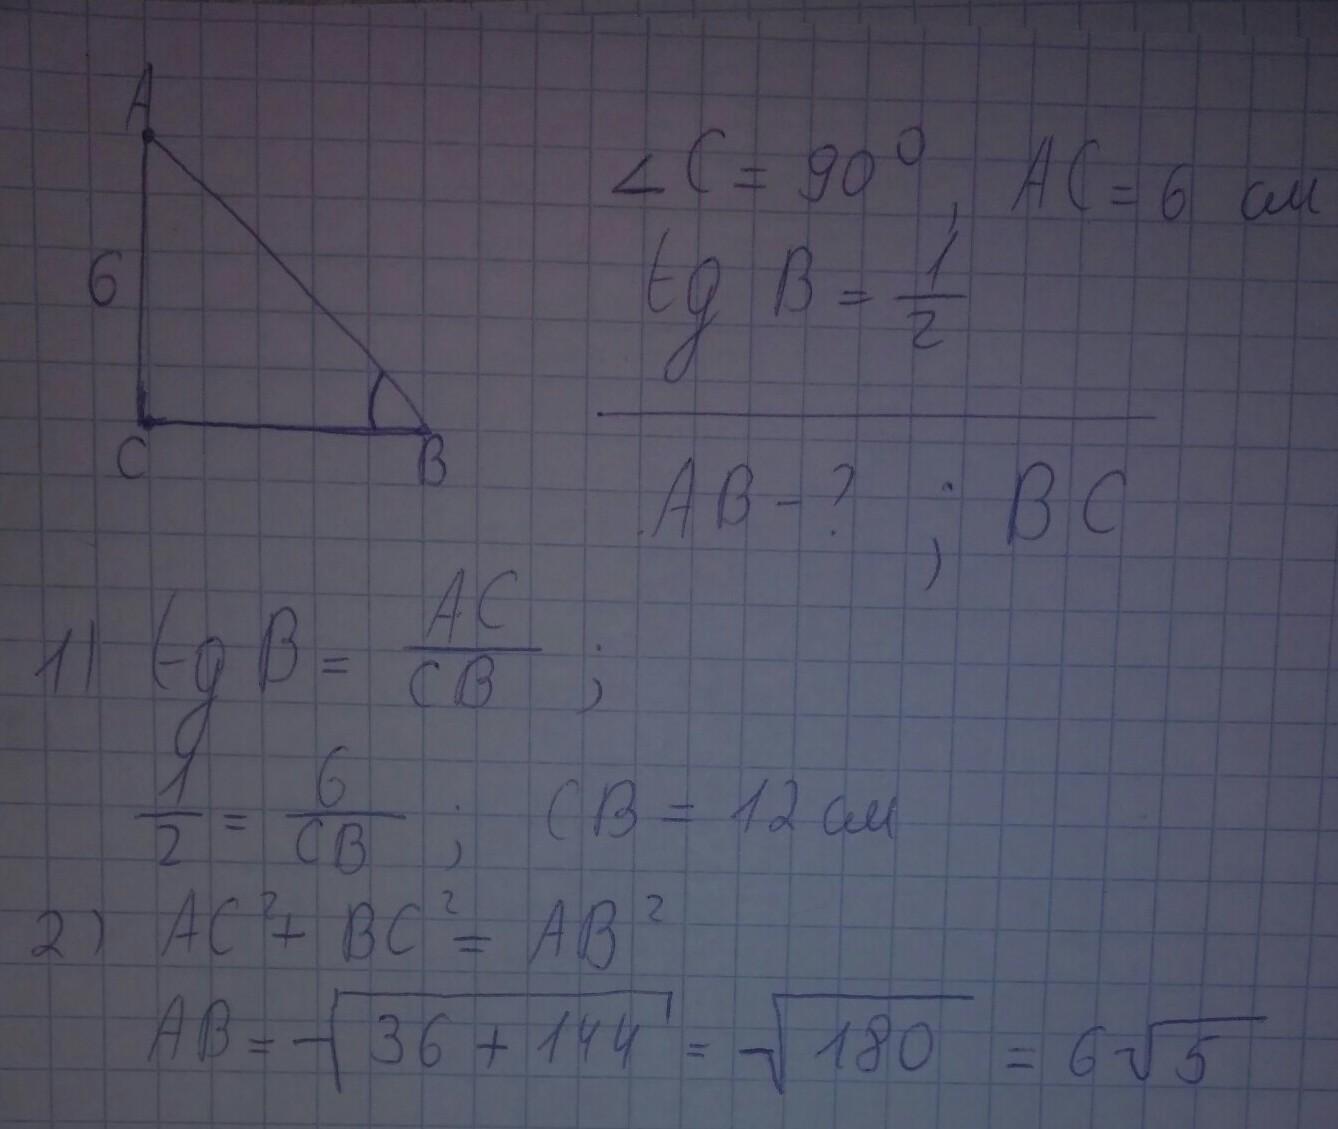 A
6
C
B
∠C = 90⁰, AC = 6 см
tg B = 1/2
AB - ? ; BC
1) tg B = AC/CB ;
1/2 = 6/CB ; CB = 12 см
2) AC² + BC² = AB²
AB = √36 + 144 = √180 = 6√5